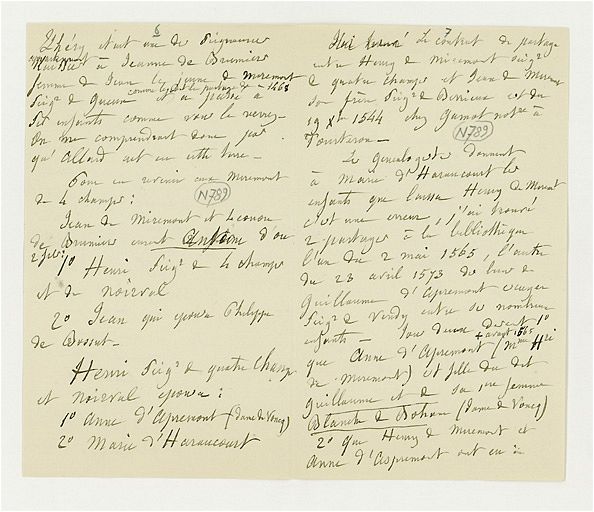 6
Théry était une de Seigneurie
appartenant à Jeanne de Brunier
femme de Jean le jeune de Miremont
Seigr de Gueux et a passé à
comme le dit le partage de 1468
ses enfants comme vous le verrez
On ne comprendrait donc pas
qu'Allard eut eu cette terre
Pour en revenir aux Miremont
de 4 champs :
N789
Jean de Miremont et
de Brunier eurent Antoine d'où
2 fils :
1o Henri Seigr de 4 champs
et de noirval
2o Jean qui épousa Philippe
de Brossut
Henri Seigr de quatre Champs
et noirval épousa :
1o Anne d'Apremont (Dame de Voncq)
2o Marie d'Haraucourt
7
Le contrat de partage
entre Henry de Miremont Seigr
de quatre champs et Jean de Miremont
son frère Seigr de Berrieux est du
19 Xbre 1544 chez Gamot notre à
Tourteron
N789
Le généalogiste donnent
à Marie d'Haraucourt les
enfants que laissa Henry de Miremont
c'est une erreur, j'ai trouvé
2 partages à la bibliothèque
l'un du 2 mai 1565, l'autre
du 23 avril 1573 de biens de
Guillaume d'Apremont
Seigr de Vendy entre ses nombreux
enfants - Tous deux disent 1o
+ avant 1565
que Anne d'Apremont (Mme Hri
de Miremont) est fille du dit
Guillaume et de sa 1re femme
Blanche de Bohan (Dame de Voncq)
2o que Henry de Miremont et
Anne d'Aspremont ont eu